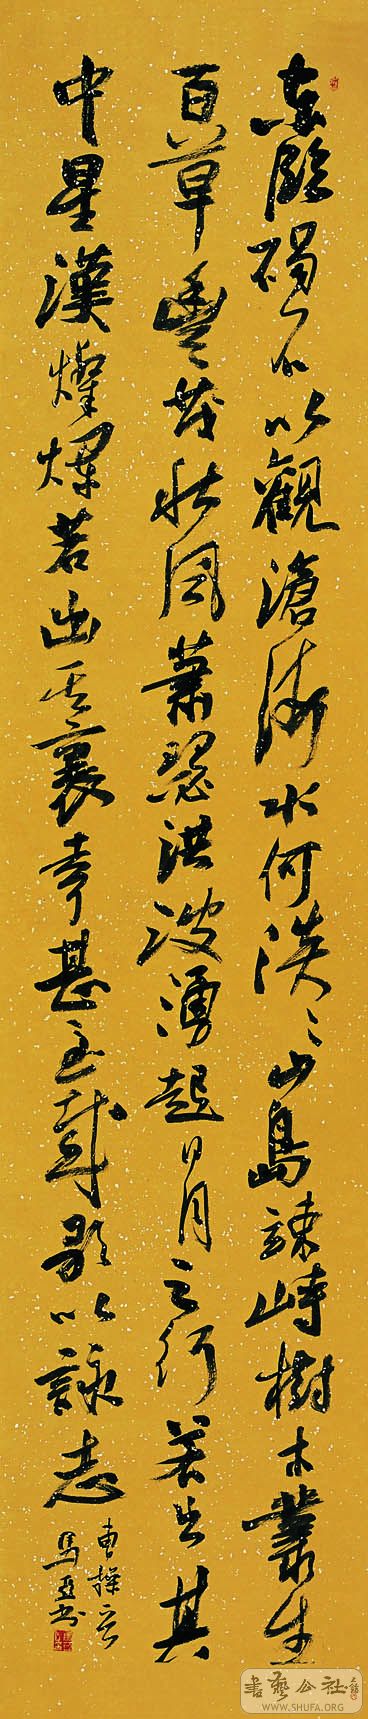 東臨碣石以觀滄海水何淡〻山島竦峙樹木叢生
百草豐茂秋風蕭瑟洪波湧起日月之行若出其
中星漢燦爛若出其裏幸甚至哉歌以詠志
曹操
馬亞書
書藝公社
WWW.SHUFA.ORG